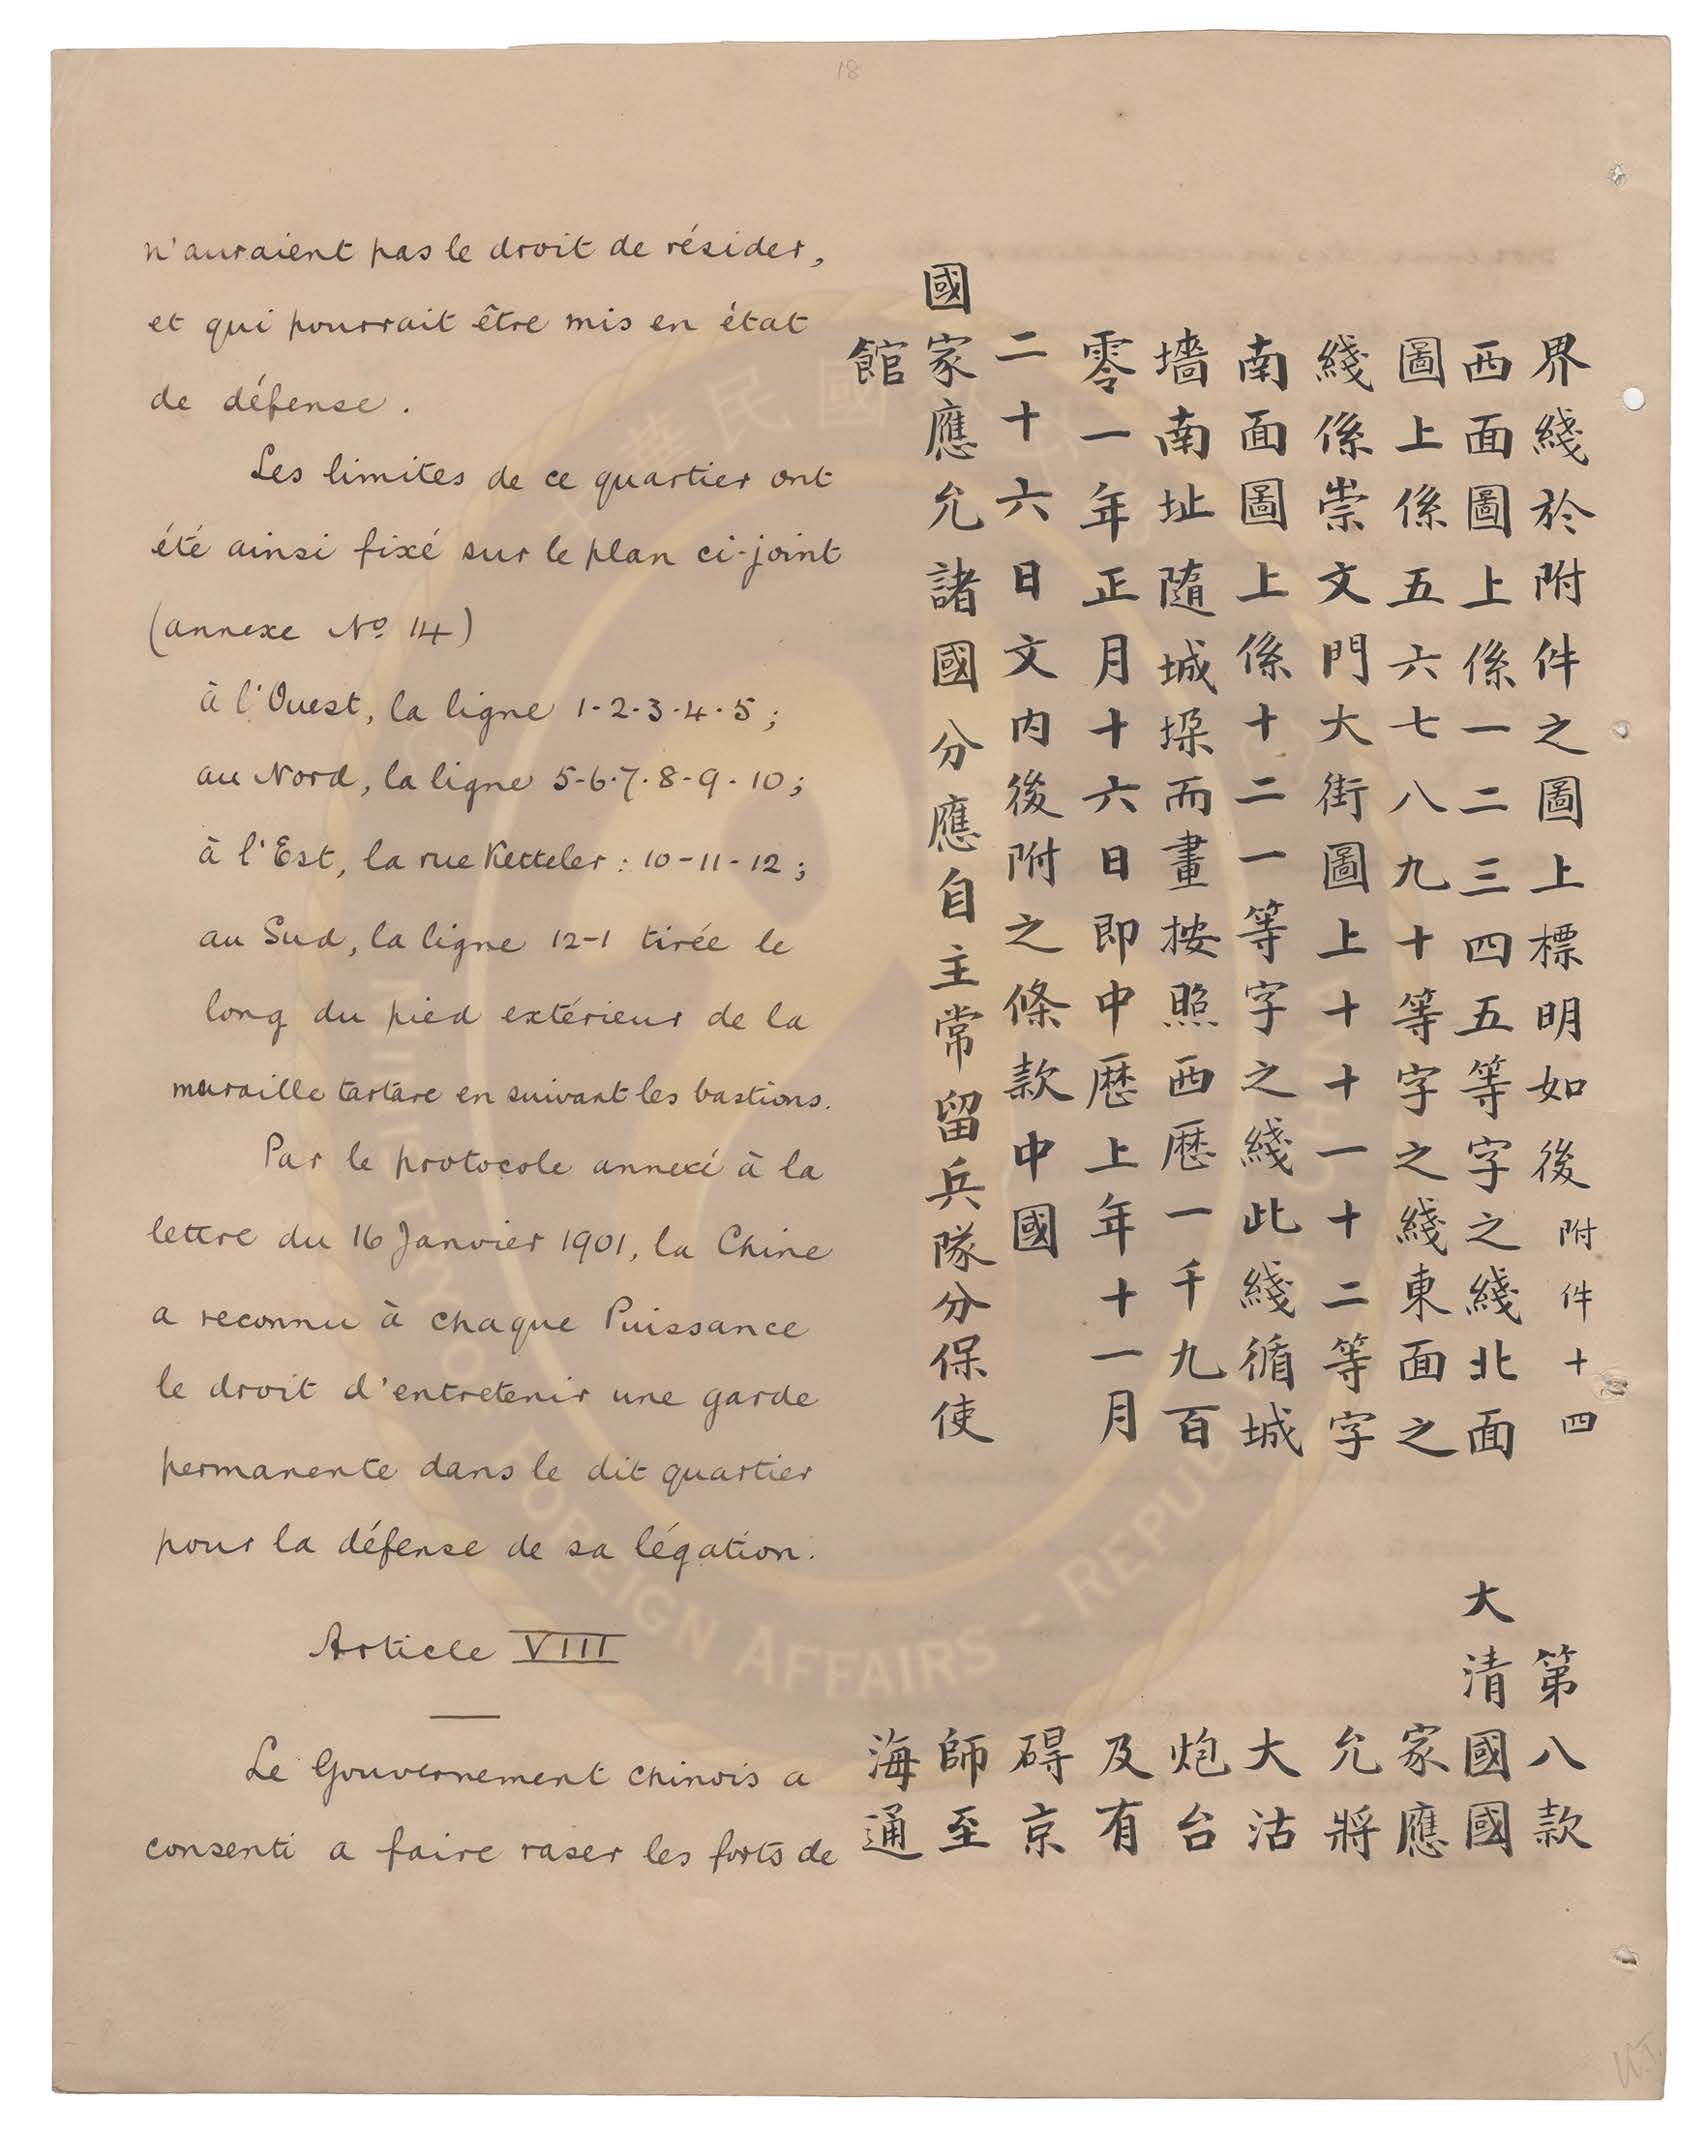 18
n'auraient pas le droit de résider,
et qui pourrait être mis en état
de défense.
Les limites de ce quartier ont
été ainsi fixé sur le plan ci-joint
(annexe No 14)
à l'Ouest, la ligne 1-2-3-4-5;
au Nord, la ligne 5-6-7-8-9-10;
à l'Est, la rue Ketteler: 10-11-12;
au Sud, la ligne 12-1 tirée le
long du pied extérieur de la
muraille tartare en suivant les bastions.
Par le protocole annexé à la
lettre du 16 Janvier 1901, la Chine
a reconnu à chaque Puissance
le droit d'entretenir une garde
permanente dans le dit quartier
pour la défense de sa légation.
Article VIII
Le Gouvernement chinois a
consenti a faire raser les forts de
界綫於附件之圖上標明如後附件十四
西面圖上係一二三四五等字之綫北面
圖上係五六七八九十等字之綫東面之
綫係崇文門大街圖上十十一十二等字
南面圖上係十二一等字之綫此綫循城
墻南址隨城垜而畫按照西歷一千九百
零一年正月十六日即中歷上年十一月
二十六日文內後附之條款中國
國家應允諸國分應自主常留兵隊分保使
館
第八款
大清國國
家應
允將
大沽
炮台
及有
碍京
師至
海通
民國
MINISTRY OF FOREIGN AFFAIRS - REPUBLIC OF CHINA